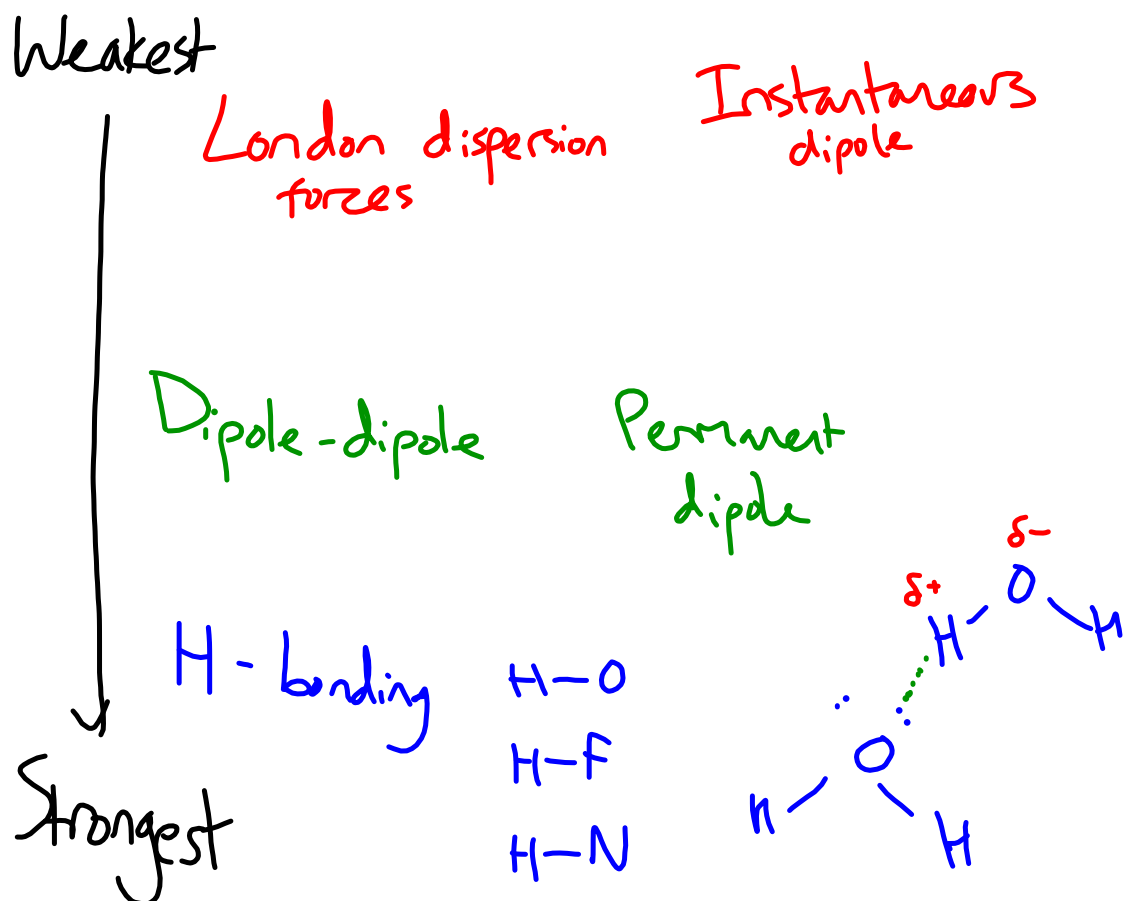 Weakest
London dispersion
forces
Instantaneous
dipole
Dipole-dipole
Permanent
dipole
H-bonding
H—O
H—F
H—N
δ-
δ+
O
H
H
O
H
H
Strongest